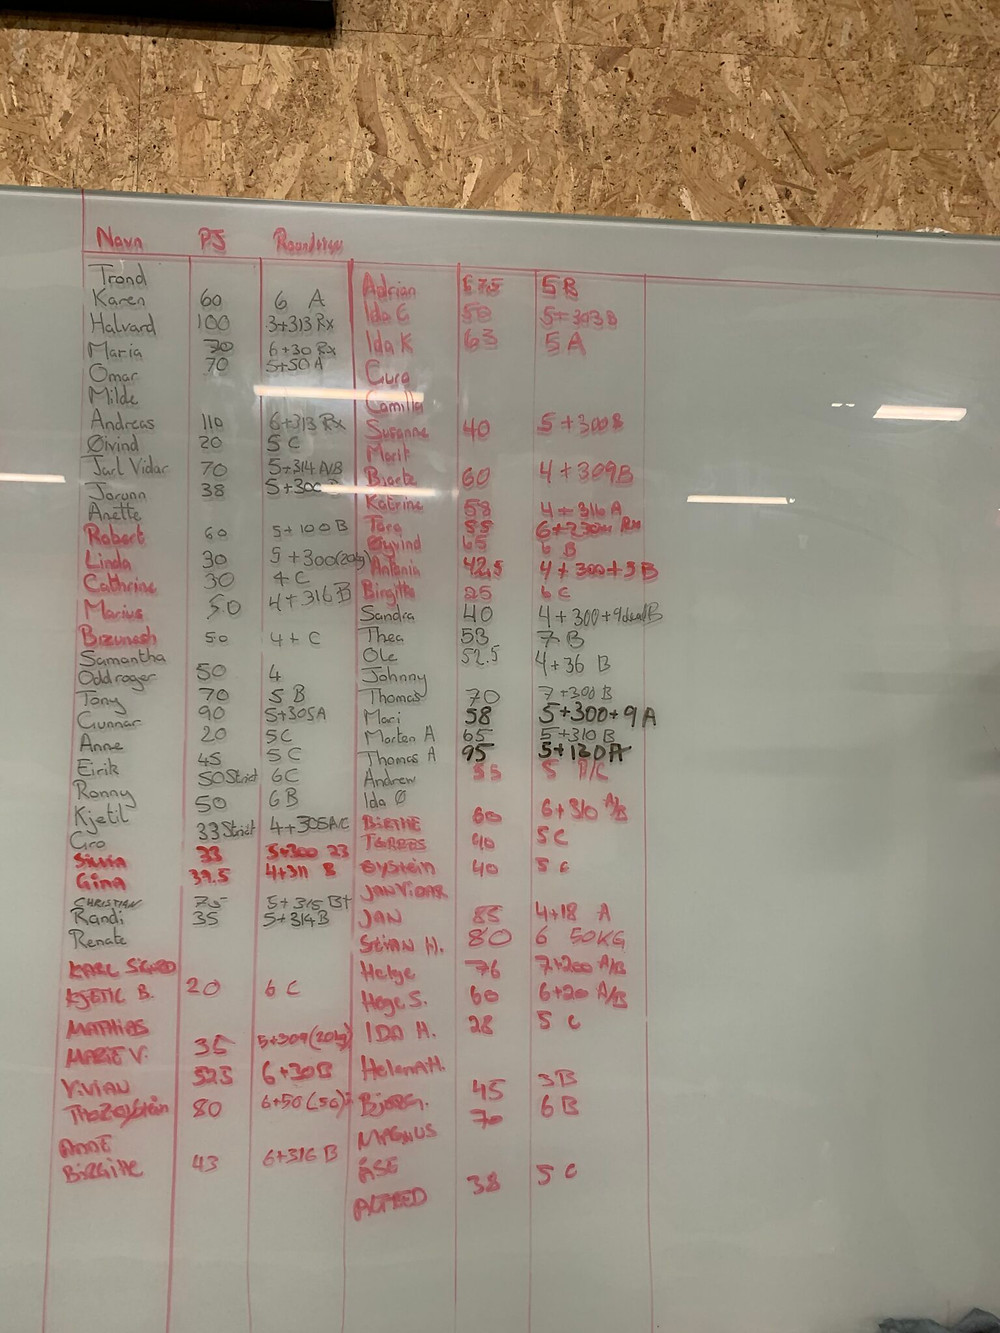 Navn PJ
Trond
Karen 60 6 A
Halvard 100 3+313 Rx
Maria 70 6+30 Rx
Omar 70 5+50 A
Milde
Andreas 110 6+313 Rx
Øivind 20 5 C
Jarl Vidar 70 5+314 A/B
Jorunn 38 5+300
Anette
Robert 60 5+100 B
Linda 30 5+300(20kg)
Cathrine 30 4 C
Marius 50 4+316 B
Bizunesh 50 4+ C
Samantha
Oddroger 50 4
Tony 70 5 B
Gunnar 90 5+305A
Anne 20 5C
Eirik 45 5 C
Ronny 50 Strict 6C
Kjetil 50 6 B
Gro 33 Strict 4+305A/C
Silvia 33 5+300 23
Gina 39.5 4+311 B
CHRISTIAN 75 5+315 B+
Randi 35 5+314B
Renate
KARL SIGURD
KJETIL B. 20 6 C
MATHIAS
MARIE V. 35 5+309(20kg)
VIVIAN 525 6+30B
80 6+50(50)
ANNE
BIRGITTE 43 6+316 B
Adrian 5B
Ida G 50 5+303B
Ida K 63 5 A
Guro
Camilla
Susanne 40 5+300B
Marit
Bjarte 60 4+309B
Katrine 58 4+316 A
Tora 55
Øyvind 65 6 B
Antonia 42,5 4+300+5B
Birgitte 25 6 C
Sandra 40 4+300+9dead B
Thea 53 7 B
Ole 52.5 4+36 B
Johnny
Thomas 70 7+300 B
Mari 58 5+300+9 A
Morten A 65 5+310 B
Thomas A 95 5+130A
Andrew 55 5
Ida Ø
BIRTHE 60 6+310 A/B
TORRES 40 5C
ØYSTEIN 40 5 C
JAN VIDAR
JAN 85 4+18 A
STIAN H. 80 6 50KG
Helge 76 7+200 A/B
Hege S. 60 6+20 A/B
IDA H. 28 5 C
Helena H.
BJØRG. 45 3B
MAGNUS 70 6B
ÅSE
ALFRED 38 5 C